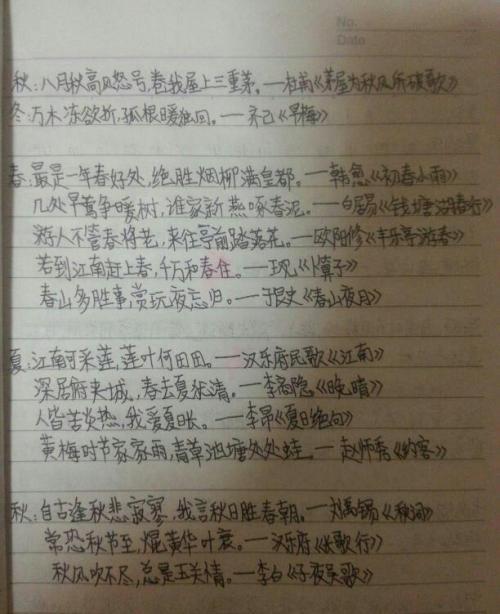 No.
Date
秋:八月秋高风怒号,卷我屋上三重茅。——杜甫《茅屋为秋风所破歌》
冬:万木冻欲折,孤根暖独回。——齐己《早梅》
春:最是一年春好处,绝胜烟柳满皇都。——韩愈《初春小雨》
几处早莺争暖树,谁家新燕啄春泥。——白居易《钱塘湖春行》
游人不管春将老,来往亭前踏落花。——欧阳修《丰乐亭游春》
若到江南赶上春,千万和春住。——王观《卜算子》
春山多胜事,赏玩夜忘归。——于良史《春山夜月》
夏:江南可采莲,莲叶何田田。——汉乐府民歌《江南》
深居府夹城,春去夏犹清。——李商隐《晚晴》
人皆苦炎热,我爱夏日长。——李昂《夏日绝句》
黄梅时节家家雨,青草池塘处处蛙。——赵师秀《约客》
秋:自古逢秋悲寂寥,我言秋日胜春朝。——刘禹锡《秋词》
常恐秋节至,焜黄华叶衰。——汉乐府《长歌行》
秋风吹不尽,总是玉关情。——李白《子夜吴歌》